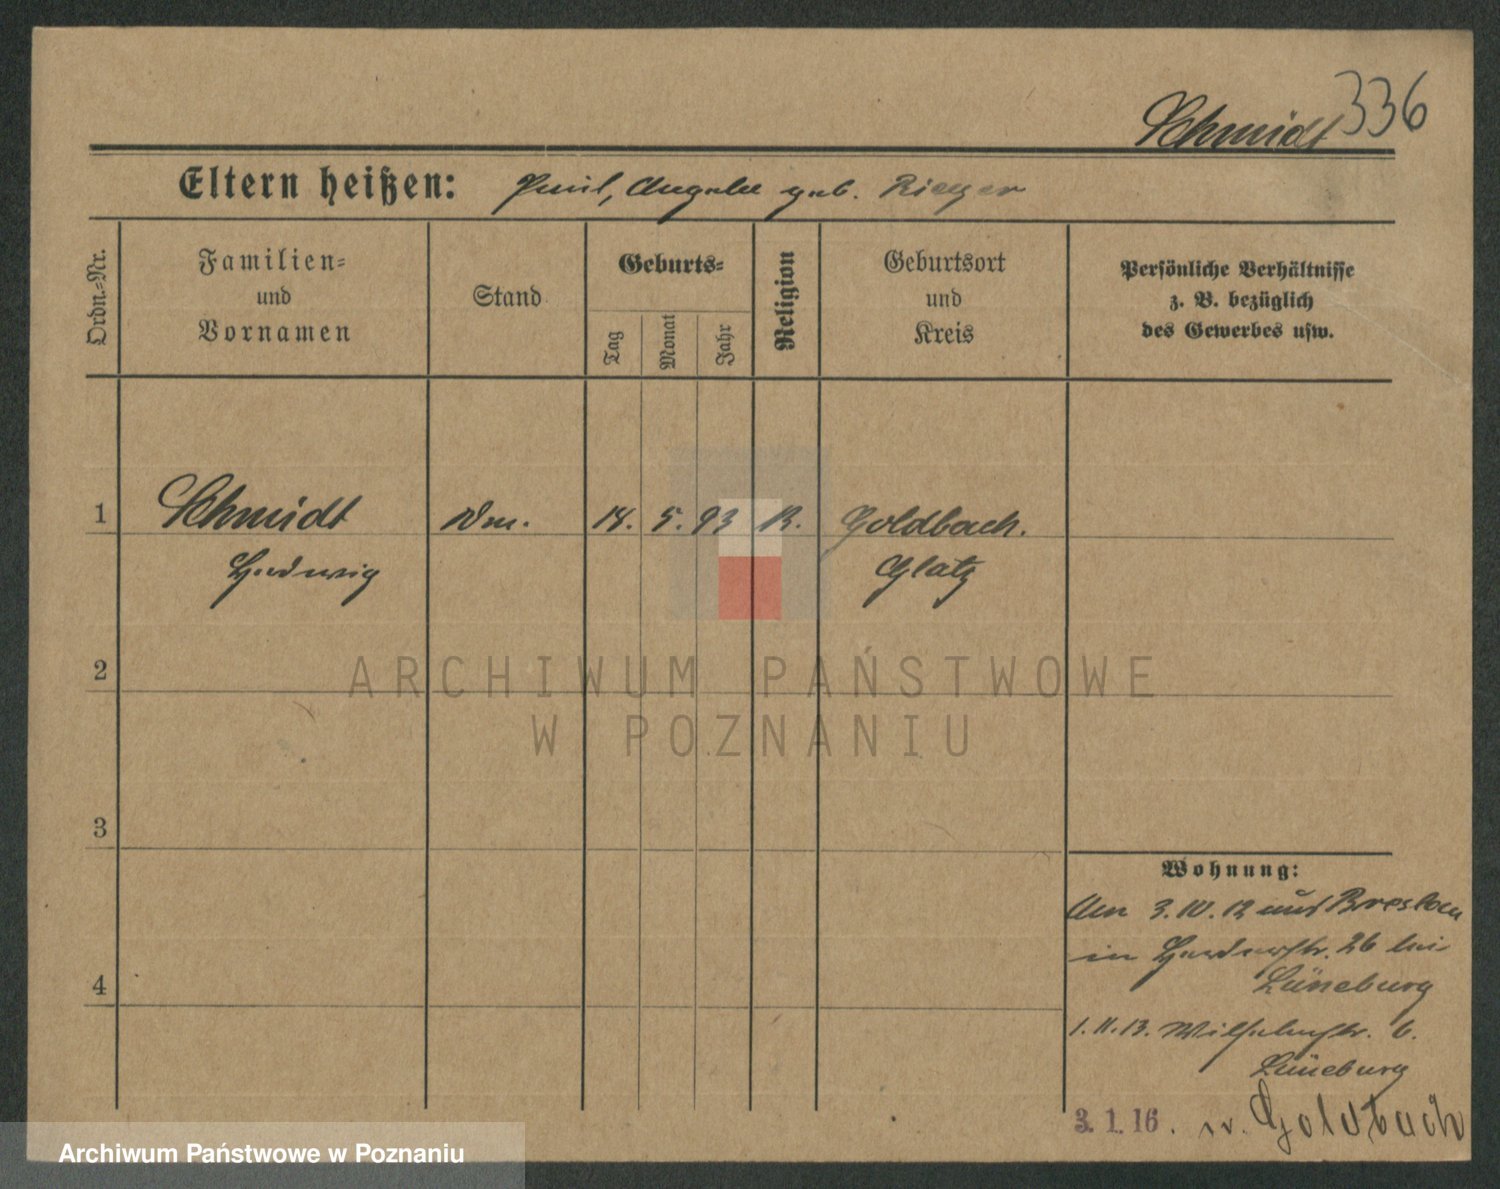 Schmidt 336
Eltern heißen: Paul, Angela geb. Rieger
Ordn.-Nr.
Familien-
und
Vornamen
Stand
Geburts-
Tag
Monat
Jahr
Religion
Geburtsort
und
Kreis
Persönliche Verhältnisse
z. B. bezüglich
des Gewerbes usw.
1 Schmidt 14. 5. 93 K. Goldbach.
Hedwig Glatz
2
ARCHIWUM PAŃSTWOWE
W POZNANIU
3
Wohnung:
Am 3.10.12 aus Breslau
in 26 bei
4
Lüneburg
1.11.13. Wilhelmstr. 6.
Lüneburg
3. 1. 16. n. Goldbach
Archiwum Państwowe w Poznaniu